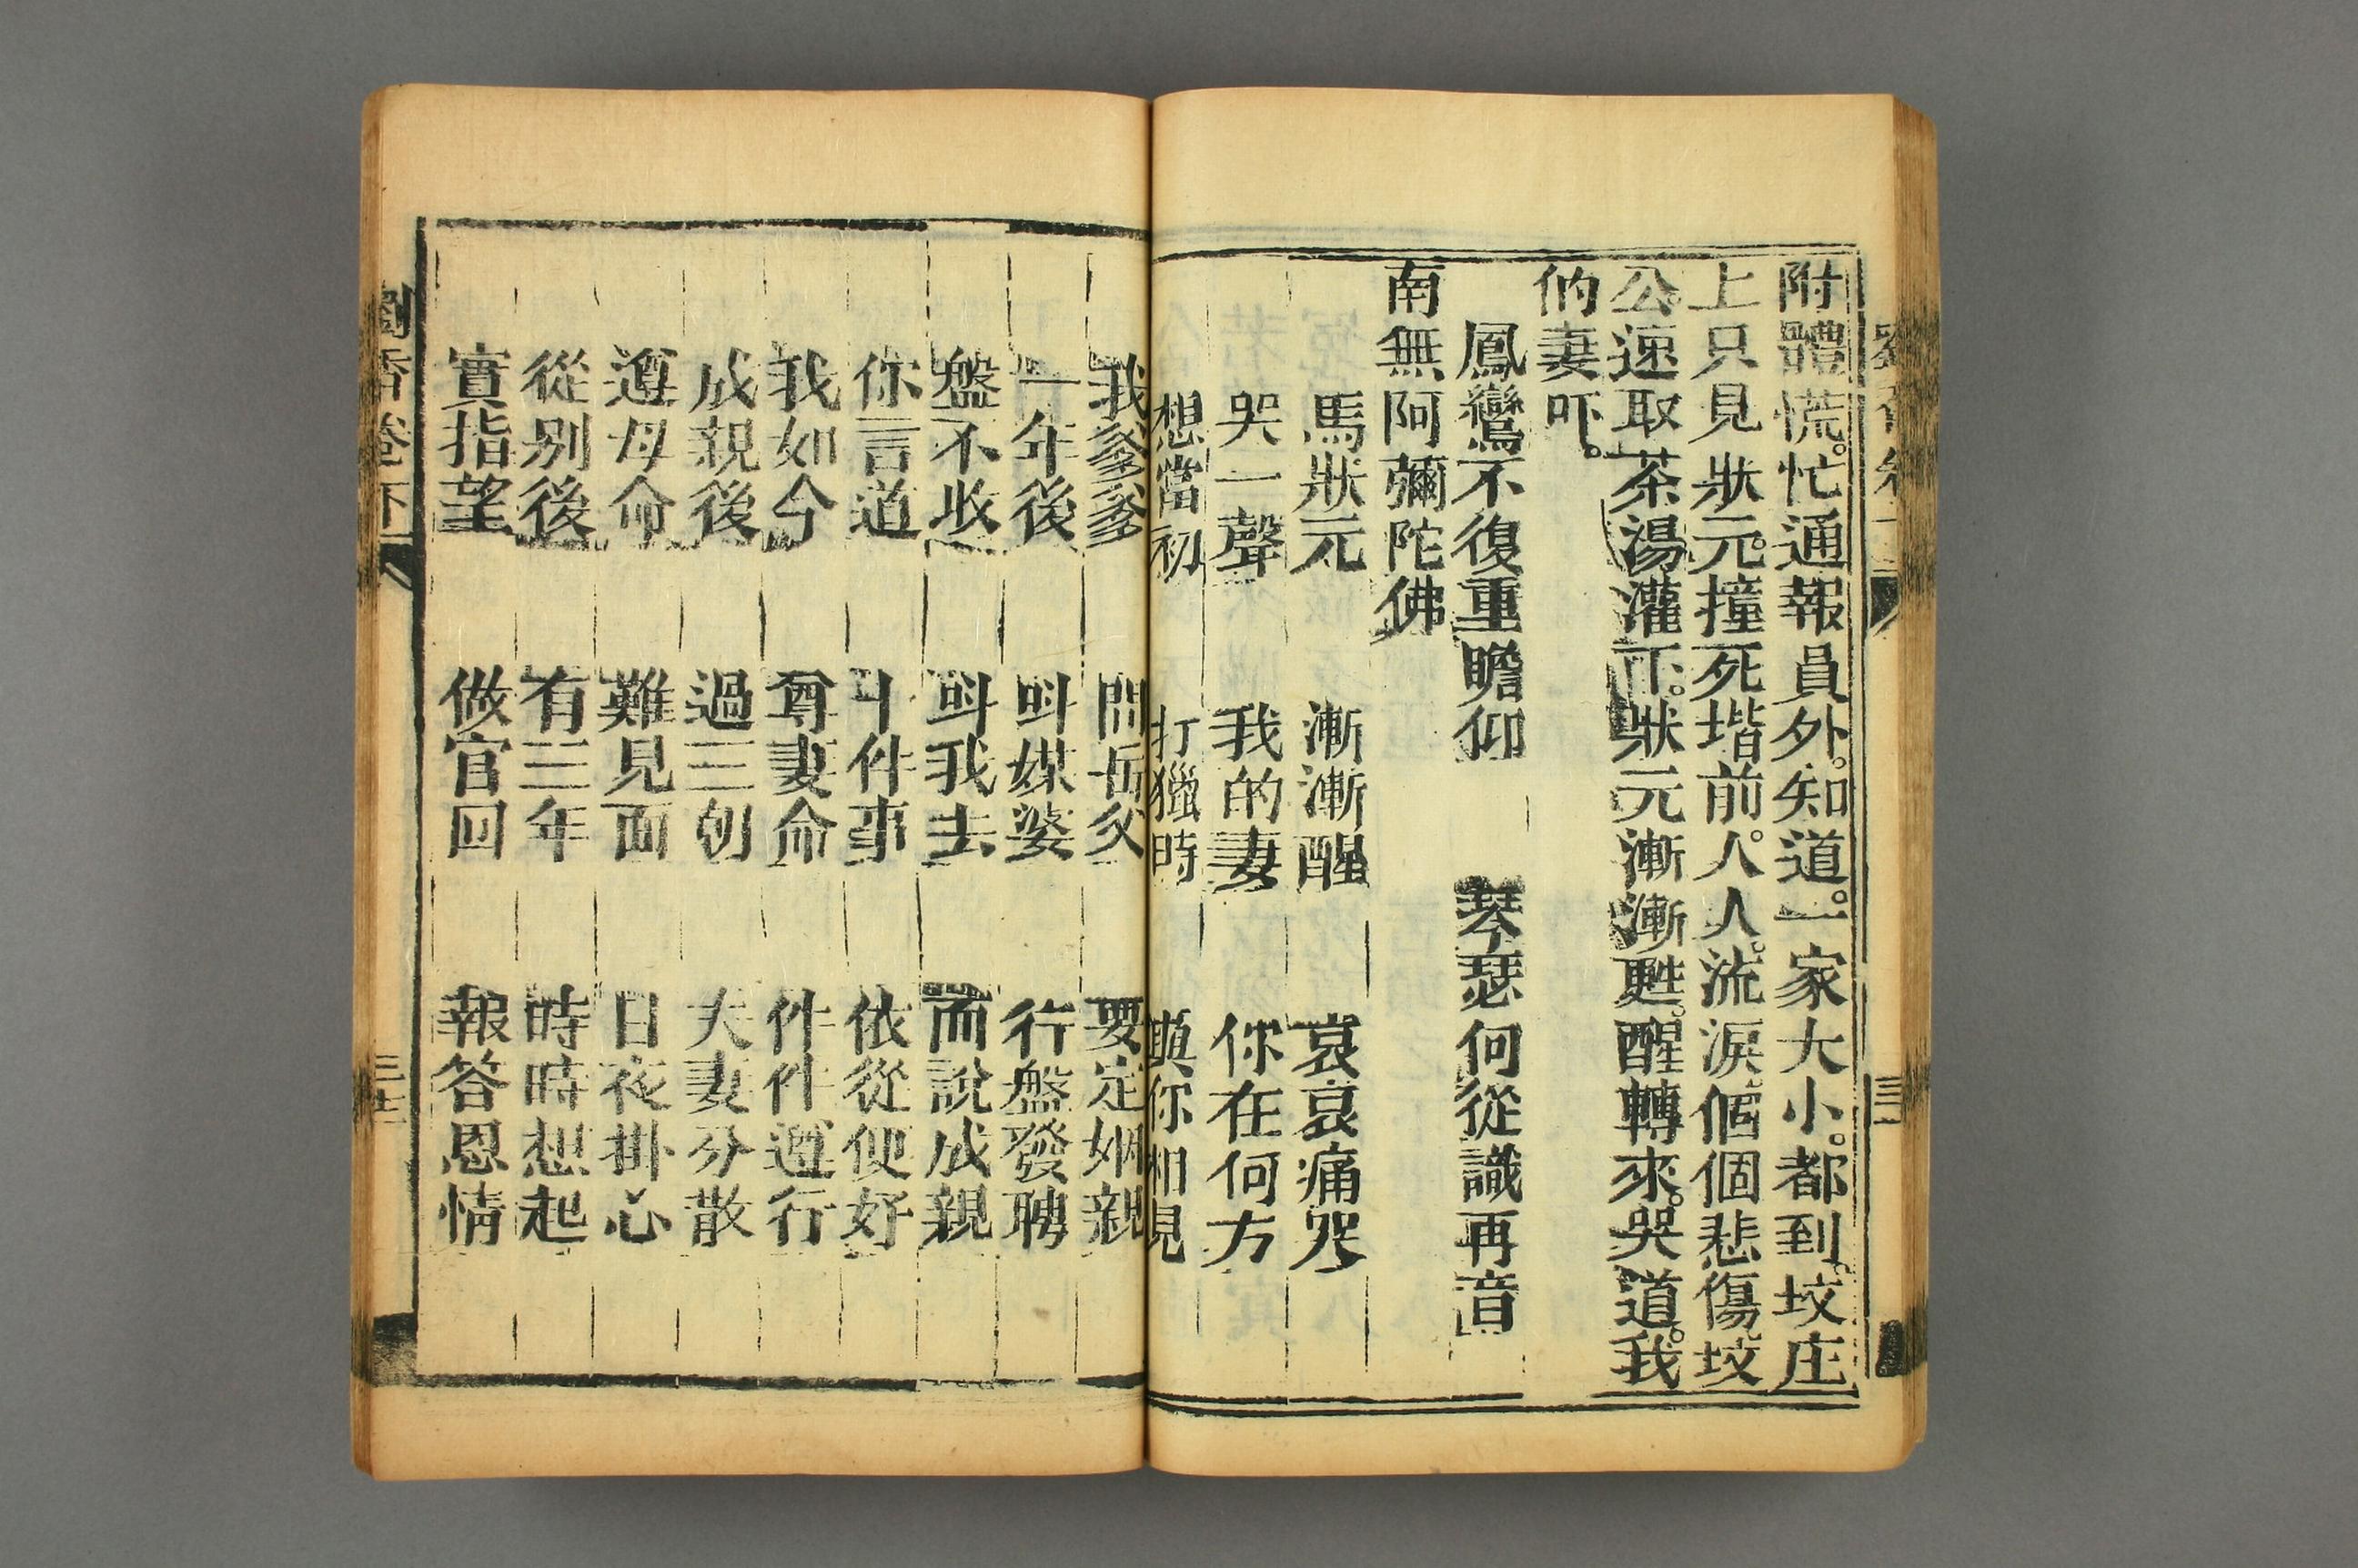 附體慌。忙通報員外。知道。一家大小。都到。坟庄
上只見狀元。撞死堦前。人人。流淚個個悲傷坟
公速取茶湯灌下。狀元漸漸甦。醒轉來。哭道。我
的妻吓。
鳳鸞不復重瞻仰 琴瑟何從識再音
南無阿彌陀佛
馬狀元 漸漸醒 哀哀痛哭
哭一聲 我的妻 你在何方
想當初 打獵時 與你相見
我爹爹 問岳父 要定姻親
一年後 叫媒婆 行盤發聘
盤不收 叫我去 而說成親
你言道 十件事 依從便好
我如今 尊妻命 件件遵行
成親後 過三朝 夫妻分散
遵母命 難見面 日夜掛心
從別後 有三年 時時想起
實指望 做官回 報答恩情
劉香卷下
三十